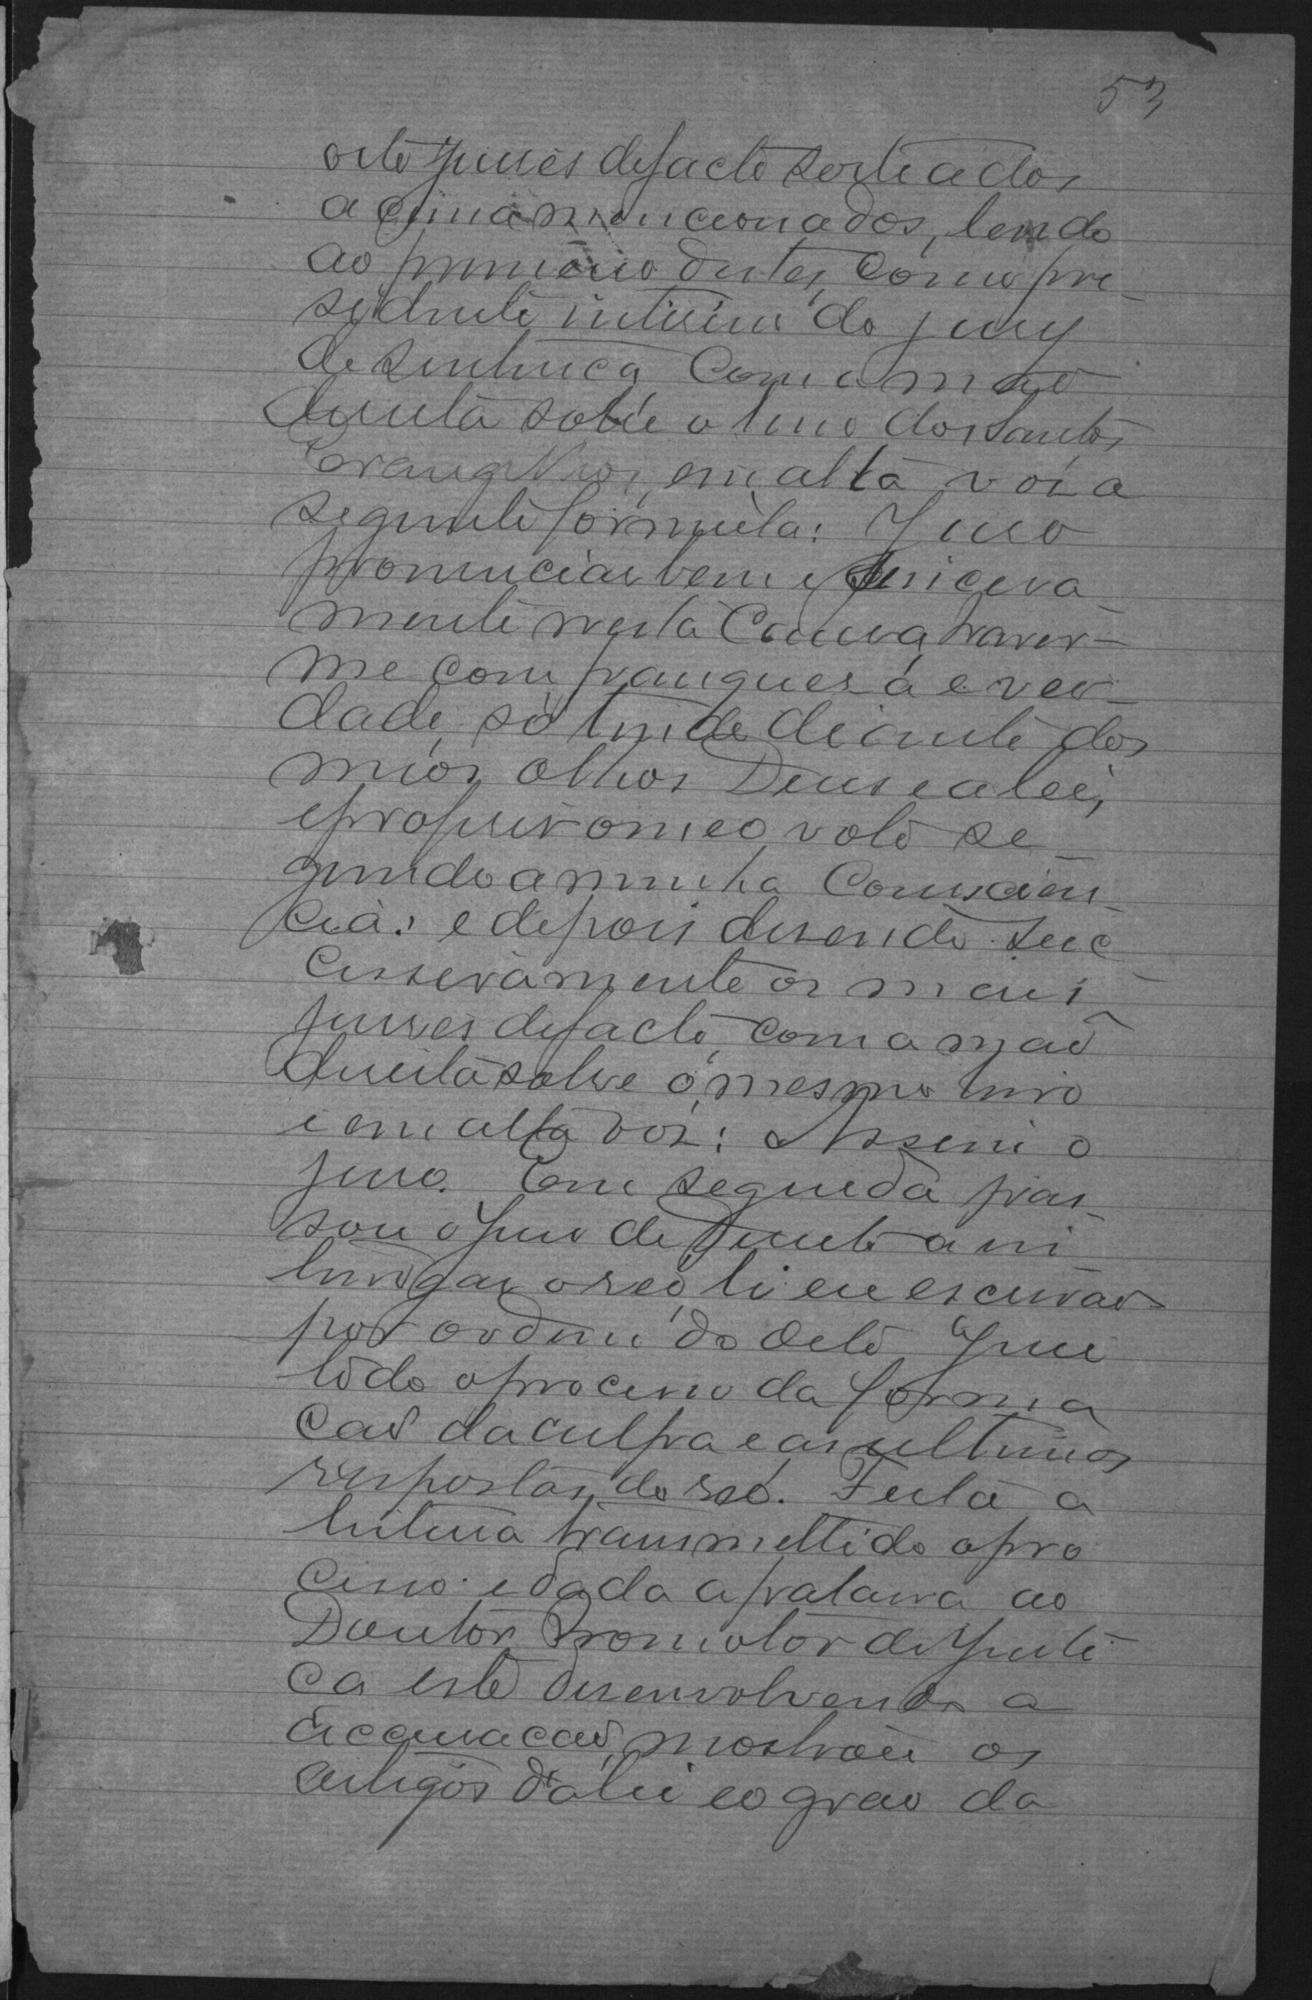 53
oito Juises de facto sorteados
acima mencionados, lendo
ao primeiro destes, como pre-
sidente interino do jury
de sentença com a mão
direita sobre o livro dos santos
Evangelhos, em alta vóz a
seguinte fórmula: Juro
pronunciar bem e sincera
mente nesta causa haver-
me com franquesa e ver-
dade, só tendo diante dos
meos olhos Deus e a lei,
e proferir o meo voto se-
gundo a minha conscien-
cia: e depois disendo suc-
cessivamente os mais
juises de facto, com a mão
direita sobre o mesmo livro
e em alta vóz: Assim o
juro. Em seguida pas-
sou o Juis de Direito a in
terrogar o reo, li eu escrivão
por ordem do dito Juis
todo o processo da forma
ção da culpa e as ultimas
respostas do reo. Feita a
leitura transmettido o pro
cesso e dada a palavra ao
Doutor Promotor de Justi
ça este desenvolvendo a
accusação, mostrou os
artigos da lei e o grao da